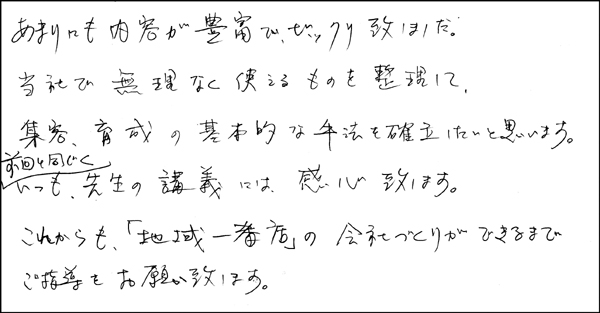 あまりにも内容が豊富で、ビックリ致しました。
当社で無理なく使えるものを整理して、
集客、育成の基本的な手法を確立したいと思います。
前回と同じく
いつも、先生の講義には感心致します。
これからも、「地域一番店」の会社づくりができるまで
ご指導をお願い致します。